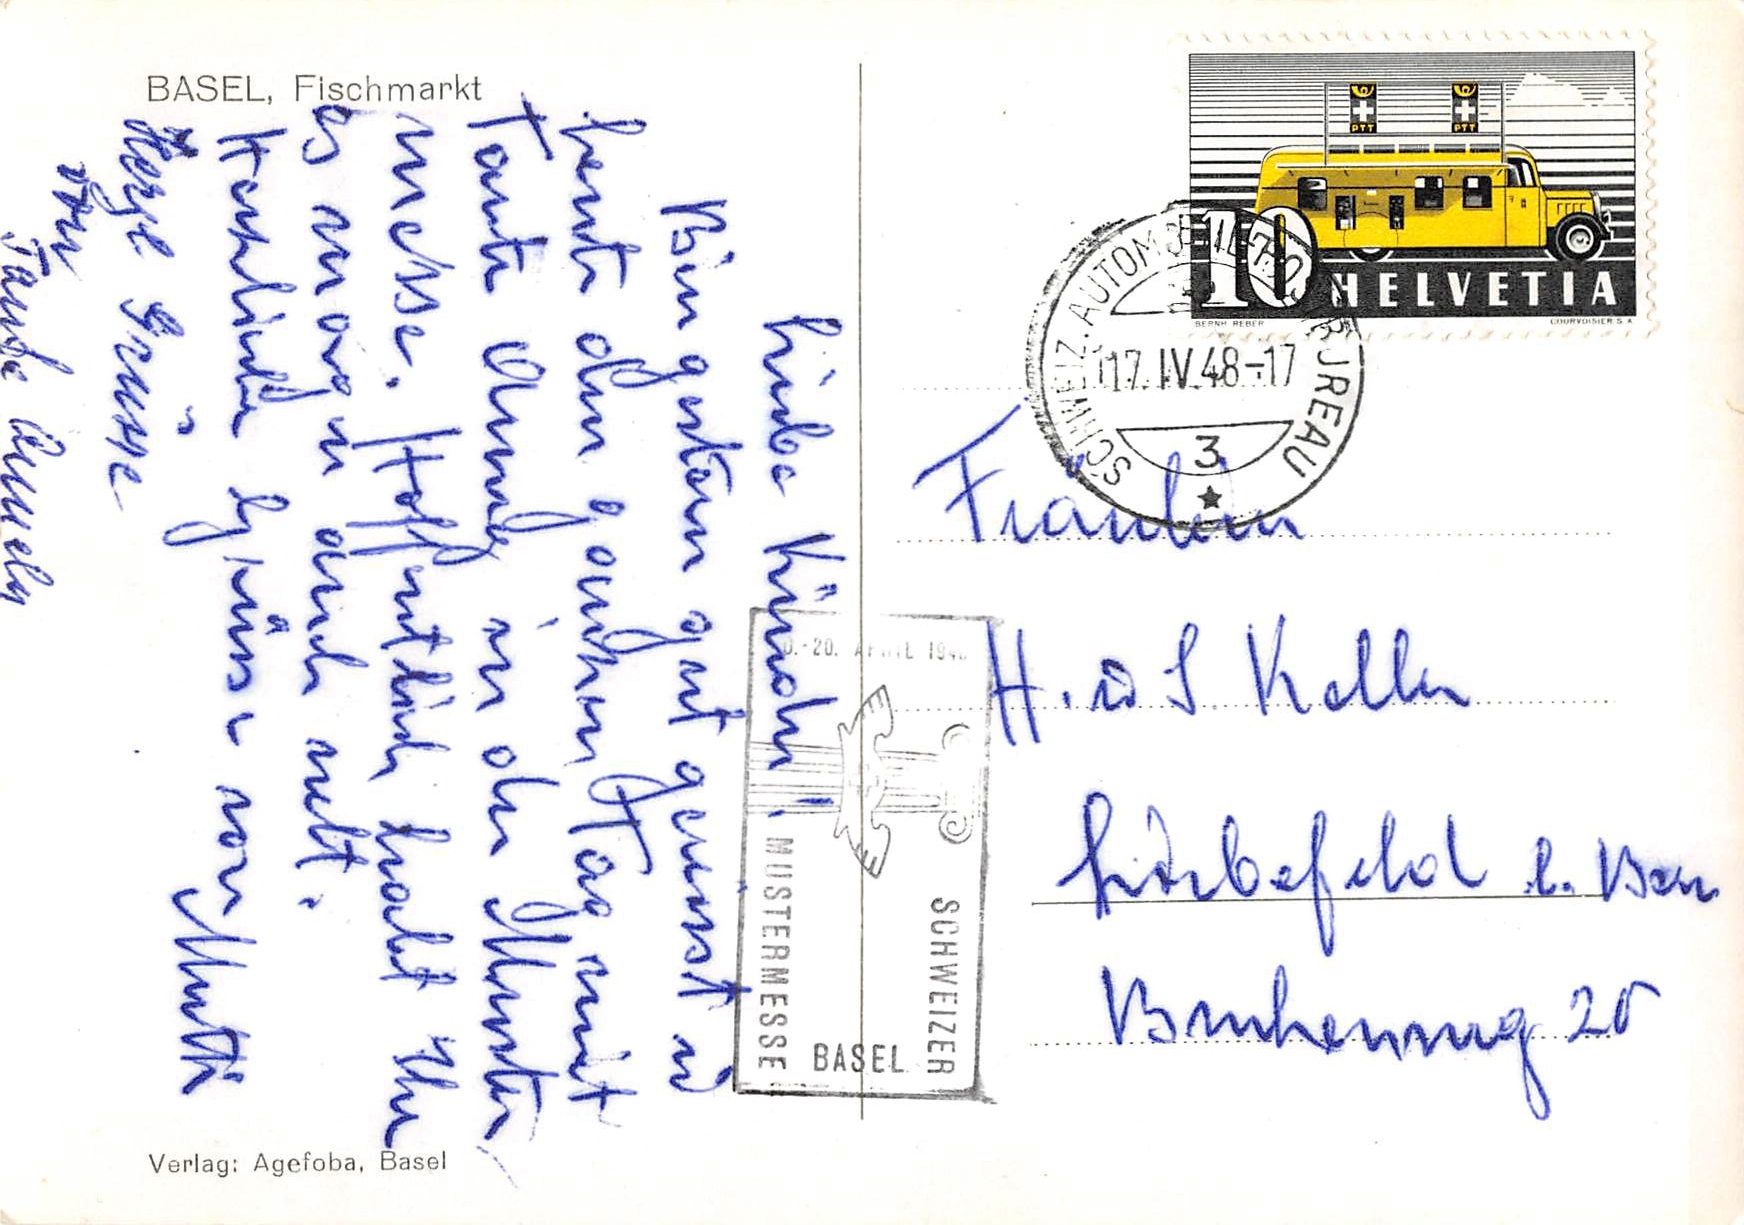 BASEL, Fischmarkt
Liebe Kinder!
Bin gestern gut gereist u
heute den ganzen Tag mit
Tante Anneli in der Muster-
messe. Hoffentlich habt Ihr
es morgen auch nett.
Herzliche Grüsse von Mutti
Herzl Grüsse
von
Tante Anneli
Verlag: Agefoba, Basel
PTT
PTT
10
HELVETIA
BERNH. REBER
COURVOISIER S.A.
SCHWEIZ. AUTOMOBIL-POSTBUREAU
17.IV.48-17
3
-20. APRIL 1948
SCHWEIZER
MUSTERMESSE
BASEL
Fräulein
H. u S Keller
Liebefeld b. Bern